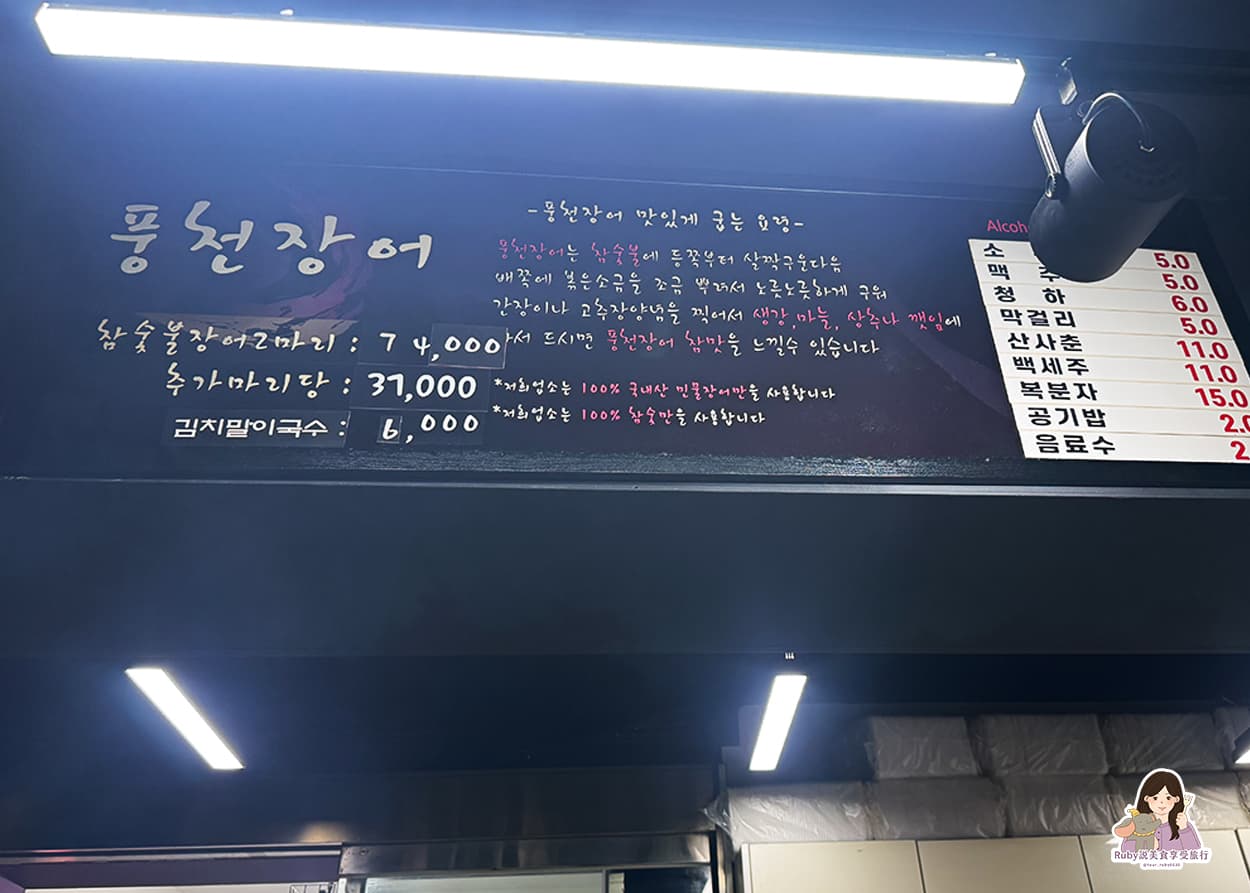 풍천장어
참숯불장어2마리 : 74,000
추가마리당 : 37,000
김치말이국수 : 6,000
-풍천장어 맛있게 굽는 요령-
풍천장어는 참숯불에 등쪽부터 살짝구운다음
배쪽에 볶은소금을 조금 뿌려서 노릇노릇하게 구워
간장이나 고추장양념을 찍어서 생강,마늘, 상추나 깻잎에
서 드시면 풍천장어 참맛을 느낄수 있습니다
*저희업소는 100% 국내산 민물장어만을 사용합니다
*저희업소는 100% 참숯만을 사용합니다
소 5.0
맥 주 5.0
청 하 6.0
막걸리 5.0
산사춘 11.0
백세주 11.0
복분자 15.0
공기밥
음료수
Ruby說美食享受旅行